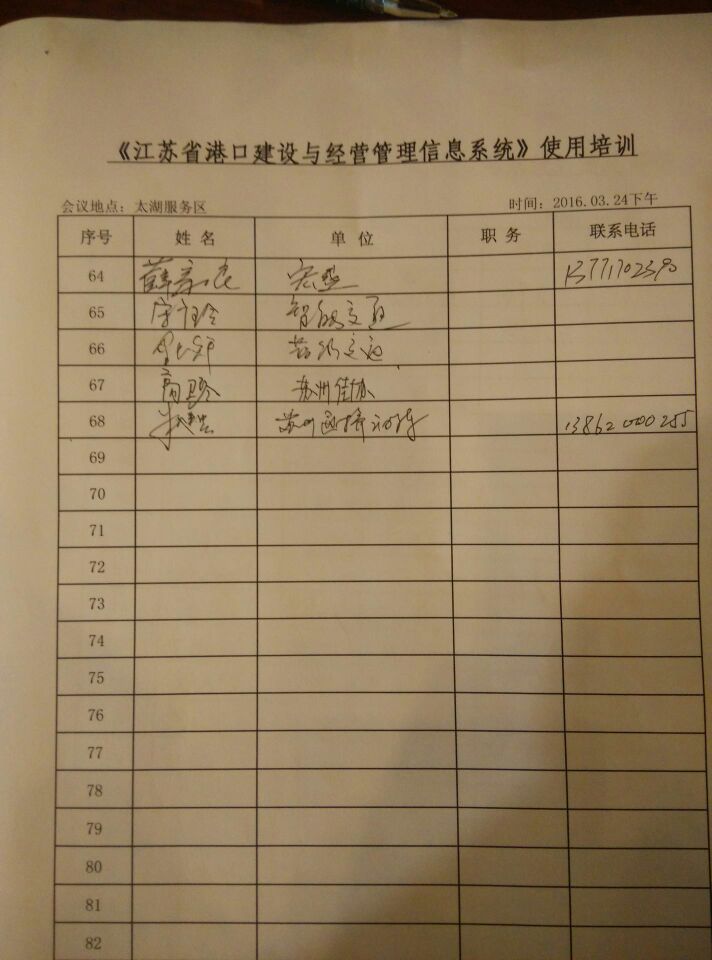 《江苏省港口建设与经营管理信息系统》使用培训
会议地点：太湖服务区 时间：2016.03.24下午
序号 姓名 单位 职务 联系电话
64 13771702390
65 智能交通
66
67 苏州佳协
68 苏州 13862000255
69
70
71
72
73
74
75
76
77
78
79
80
81
82